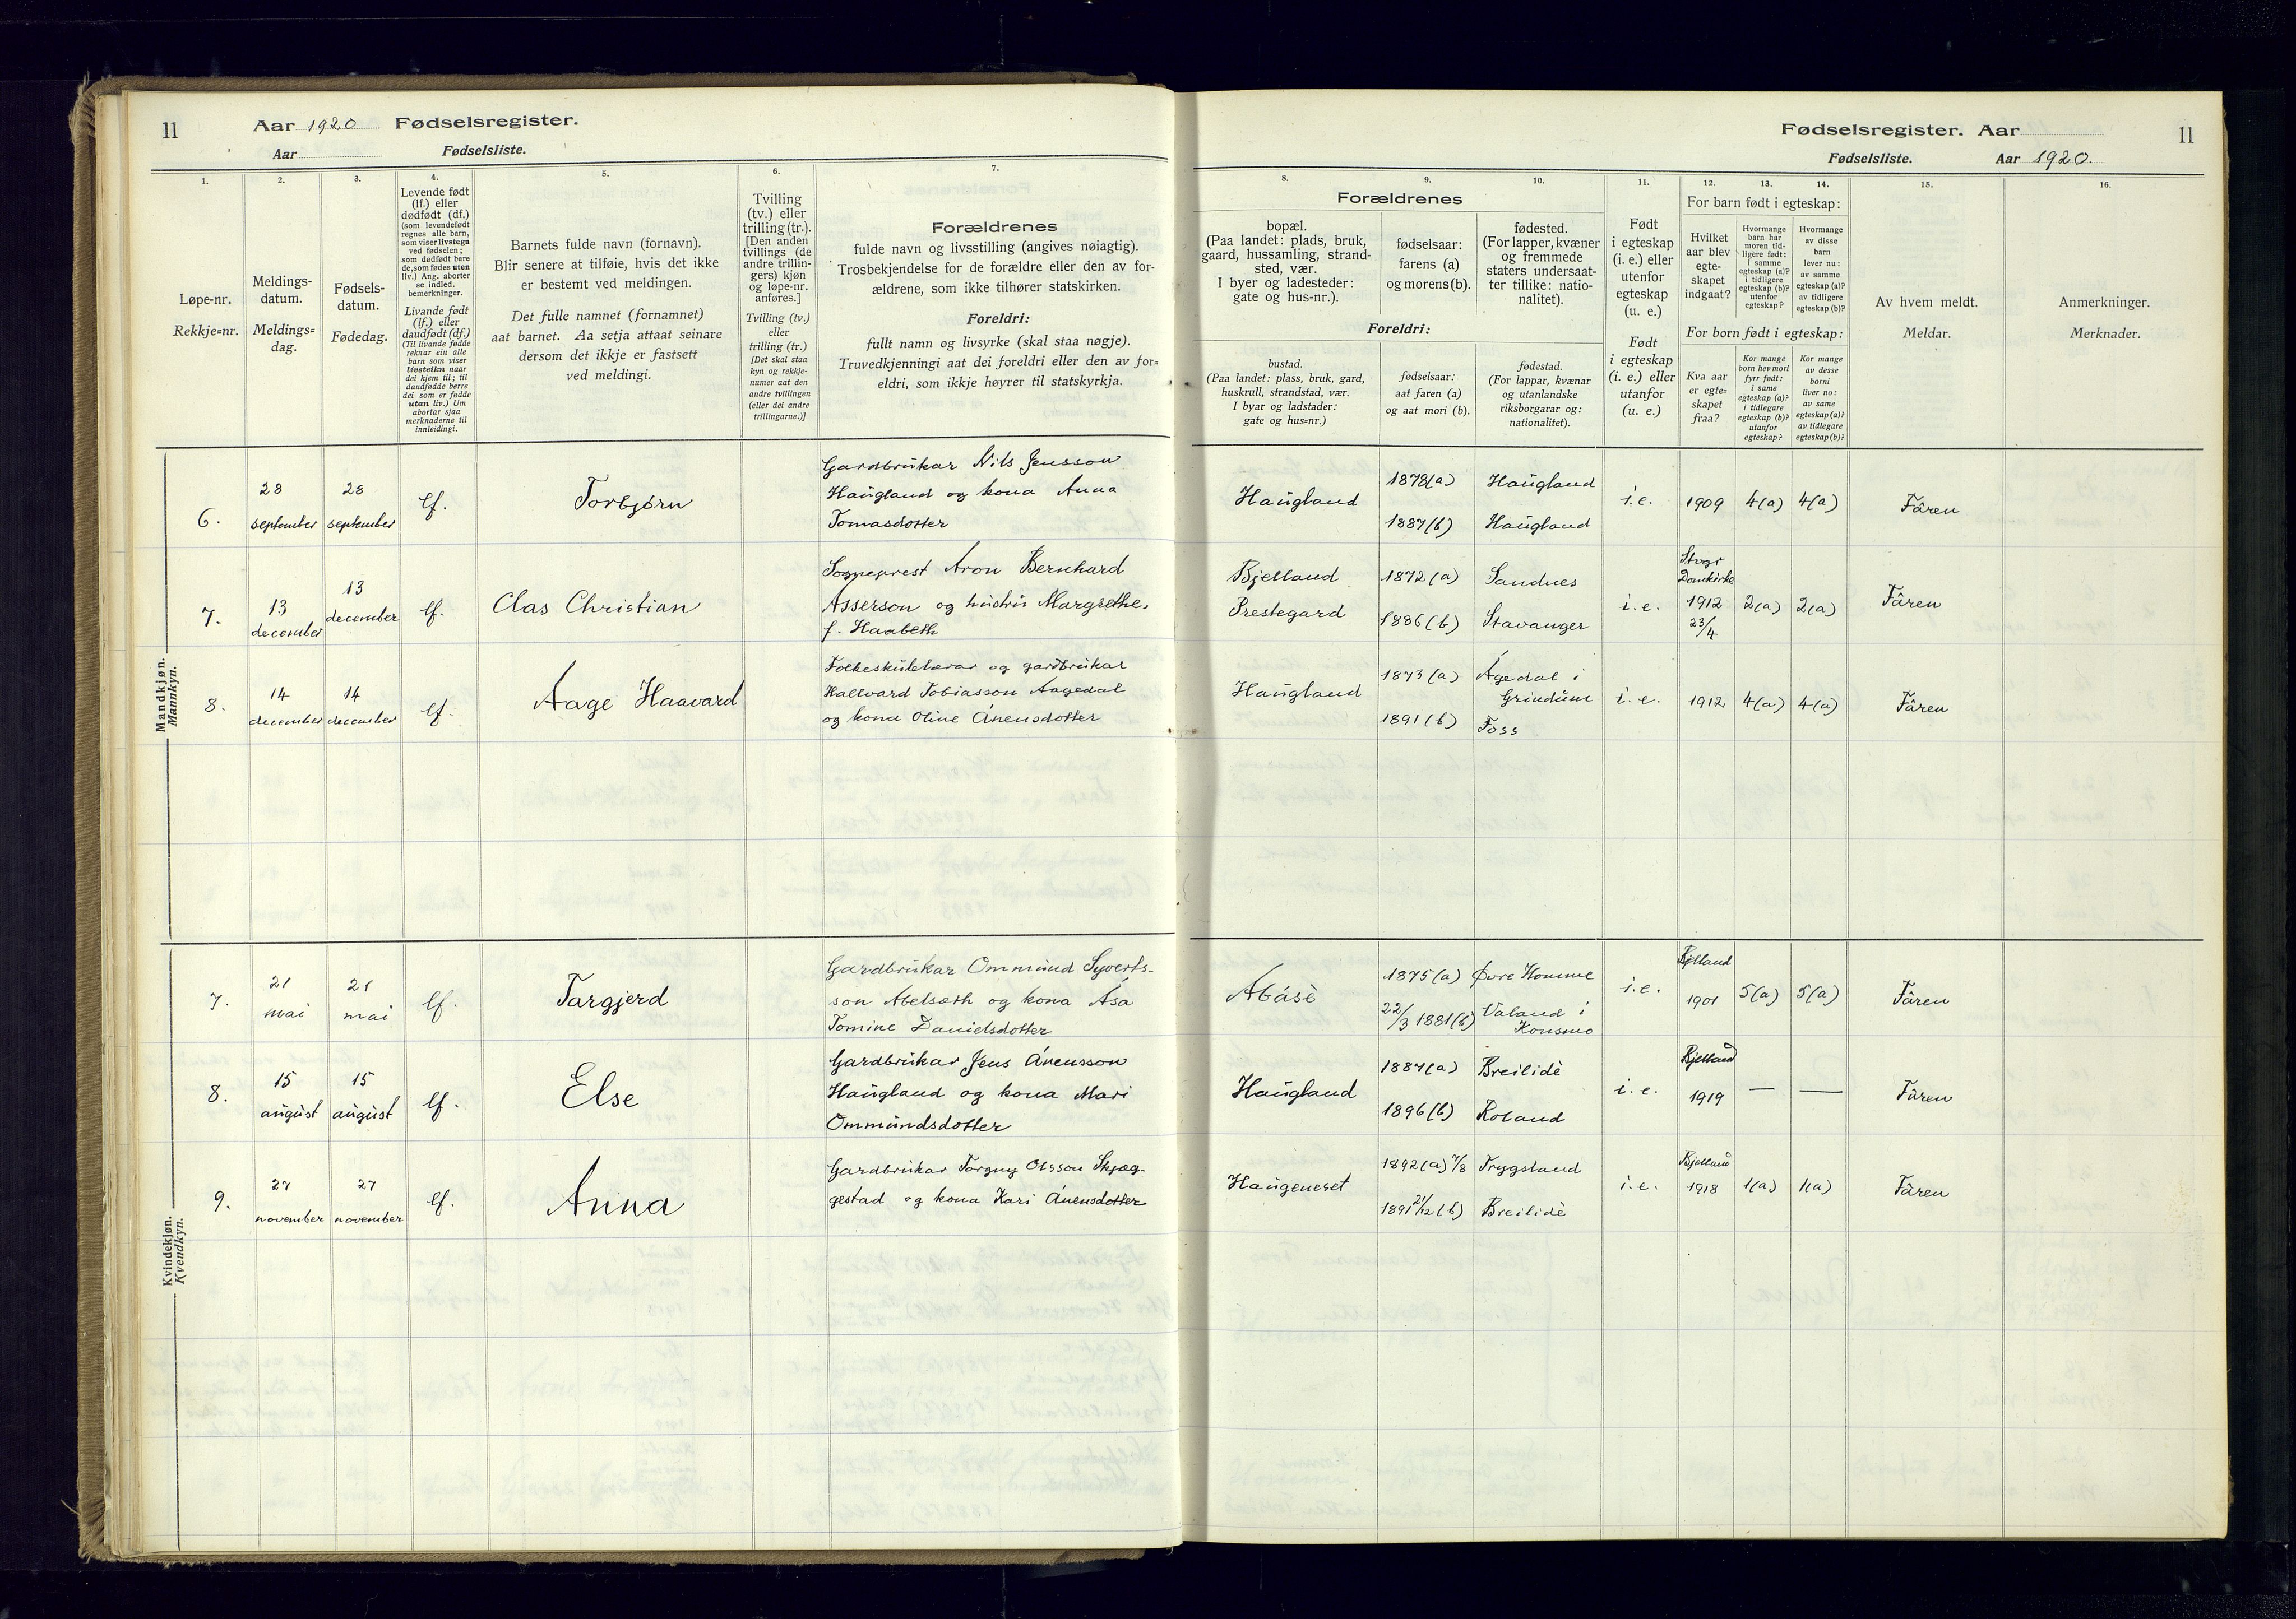 11
Aar 1920 Fødselsregister.
Aar Fødselsliste.
1.
2.
3.
4.
5.
6.
7.
Løpe-nr.
Rekkje=nr.
Meldings-
datum.
Meldings=
dag.
Fødsels-
datum.
Fødedag.
Levende født
(lf.) eller
dødfødt (df.)
(som levendefødt
regnes alle barn,
som viser livstegn
ved fødselen;
som dødfødt bare
de, som fødes uten
liv.) Ang. aborter
se indled.
bemerkninger.
Livande født
(lf.) eller
daudfødt (df.)
(Til livande fødde
reknar ein alle
barn som viser
livsteikn naar
dei kjem til; til
daudfødde berre
dei som er fødde
utan liv.) Um
abortar sjaa
merknaderne til
innleidingi.
Barnets fulde navn (fornavn).
Blir senere at tilføie, hvis det ikke
er bestemt ved meldingen.
Det fulle namnet (fornamnet)
aat barnet. Aa setja attaat seinare
dersom det ikkje er fastsett
ved meldingi.
Tvilling
(tv.) eller
trilling (tr.).
[Den anden
tvillings (de
andre trillin-
gers) kjøn
og løpe-nr.
anføres.]
Tvilling (tv.)
eller
trilling (tr.)
[Det skal staa
kyn og rekkje-
numer aat den
andre tvillingen
(eller dei andre
trillingarne.)]
Forældrenes
fulde navn og livsstilling (angives nøiagtig).
Trosbekjendelse for de forældre eller den av for-
ældrene, som ikke tilhører statskirken.
Foreldri:
fullt namn og livsyrke (skal staa nøgje).
Truvedkjenningi aat dei foreldri eller den av for=
eldri, som ikkje høyrer til statskyrkja.
Mandkjøn.
Mannkyn.
6.
28
september
28
september
lf.
Torbjørn
Gardbrukar Nils Jensson
Haugland og kona Anna
Tomasdotter
7.
13
december
13
december
lf.
Clas Christian
Sogneprest Aron Bernhard
Asserson og hustru Margrethe,
f. Haabeth
8.
14
december
14
december
lf.
Aage Haavard
Folkeskulelærar og gardbrukar
Hallvard Tobiasson Aagedal
og kona Oline Ånensdotter
Kvindekjøn.
Kvendkyn.
7.
21
mai
21
mai
lf.
Targjerd
Gardbrukar Ommund Syverts-
son Abelsæth og kona Åsa
Tomine Danielsdotter
8.
15
august
15
august
lf.
Else
Gardbrukar Jens Ånensson
Haugland og kona Mari
Ommundsdotter
9.
27
november
27
november
lf.
Anna
Gardbrukar Torgny Olsson Skjæg-
gestad og kona Kari Ånensdotter
Fødselsregister. Aar
Fødselsliste. Aar 1920.
11
8.
9.
10.
11.
12.
13.
14.
15.
16.
Forældrenes
bopæl.
(Paa landet: plads, bruk,
gaard, hussamling, strand-
sted, vær.
I byer og ladesteder:
gate og hus-nr.).
fødselsaar:
farens (a)
og morens (b).
fødested.
(For lapper, kvæner
og fremmede
staters undersaat-
ter tillike: natio-
nalitet).
Foreldri:
bustad.
(Paa landet: plass, bruk, gard,
huskrull, strandstad, vær.
I byar og ladstader:
gate og hus=nr.)
fødselsaar:
aat faren (a)
og aat mori (b).
fødestad.
(For lappar, kvænar
og utanlandske
riksborgarar og:
nationalitet).
Født
i egteskap
(i. e.) eller
utenfor
egteskap
(u. e.)
Født
i egteskap
(i. e.) eller
utanfor
(u. e.)
For barn født i egteskap:
Hvilket
aar blev
egte-
skapet
indgaat?
Hvormange
barn har
moren tid-
ligere født:
i samme
egteskap (a)?
i tidligere
egteskap (b)?
utenfor
egteskap?
Hvormange
av disse
barn
lever nu:
av samme
egteskap (a)?
av tidligere
egteskap (b)?
For born født i egteskap:
Kva aar
er egte-
skapet
fraa?
Kor mange
born hev mori
fyrr født:
i same
egteskap (a)?
i tidlegare
egteskap (b)?
utanfor
egteskap?
Kor mange
av desse
borni
liver no:
av same
egteskap (a)?
av tidlegare
egteskap (b)?
Av hvem meldt.
Meldar.
Anmerkninger.
Merknader.
Haugland
1878(a)
1887(b)
Haugland
Haugland
i.e.
1909
4(a)
4(a)
Fåren
Bjelland
Prestegard
1872(a)
1886(b)
Sandnes
Stavanger
i.e.
Stvgr
Domkirke
1912
23/4
2(a)
2(a)
Fåren
Haugland
1873(a)
1891(b)
Ågedal i
Grindum
Foss
i.e.
1912
4(a)
4(a)
Fåren
Abåsè
1875(a)
22/3 1881(b)
Øvre Homme
Valand i
Konsmo
i.e.
Bjelland
1901
5(a)
5(a)
Fåren
Haugland
1887(a)
1896(b)
Breilidè
Roland
i.e.
Bjelland
1919
—
—
Fåren
Haugeneset
1892(a) 7/8
1891 21/12 (b)
Trygsland
Breilidè
i.e.
Bjelland
1918
1(a)
1(a)
Fåren